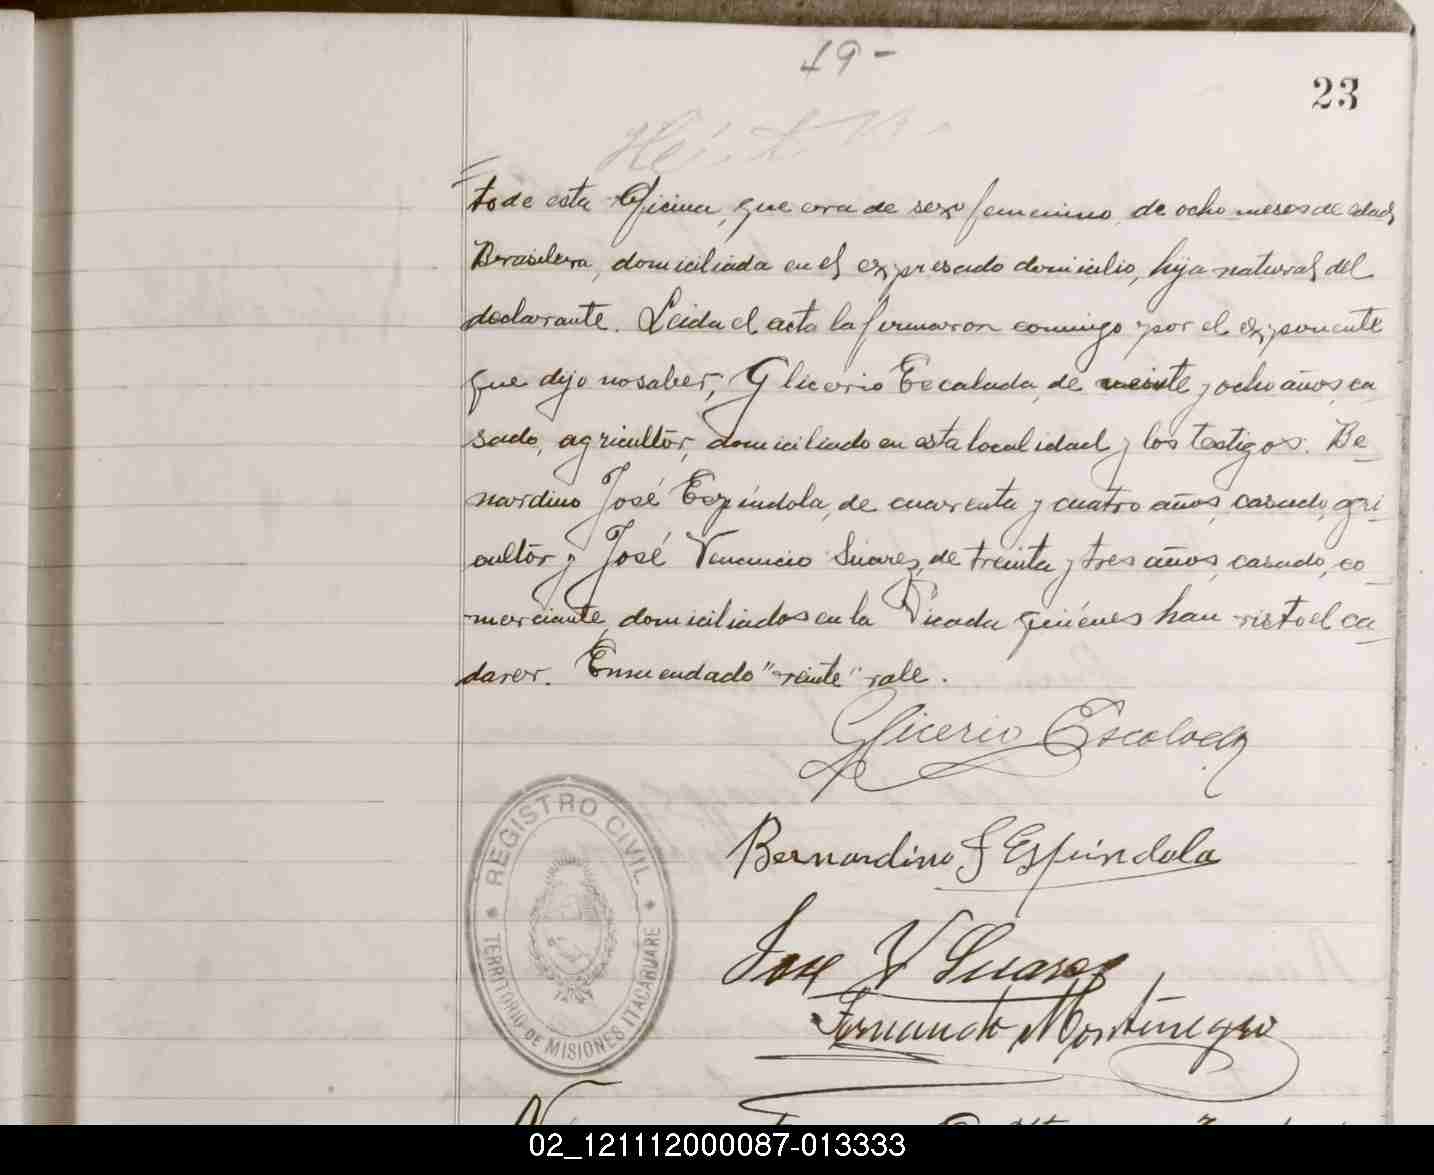 19-
23
to de esta Oficina, que era de sexo femenino, de ocho meses de edad,
Brasilera, domiciliada en el expresado domicilio, hija natural del
declarante. Leida el acta la firmaron conmigo por el exponente
que dijo no saber, Glicerio Escalada, de veinte y ocho años, ca
sado, agricultor, domiciliado en esta localidad y los testigos. Be-
nardino José Espíndola, de cuarenta y cuatro años, casado, gri-
cultor y José Venancio Suarez, de treinta y tres años, casado, co-
merciante, domiciliados en la Picada quiénes han visto el ca-
daver. Enmendado "veinte" vale.
Glicerio Escalada
Bernardino J Espindola
Jose V Suarez
Fernando Montenegro
REGISTRO CIVIL
TERRITORIO DE MISIONES ITACARUARE
02_121112000087-013333